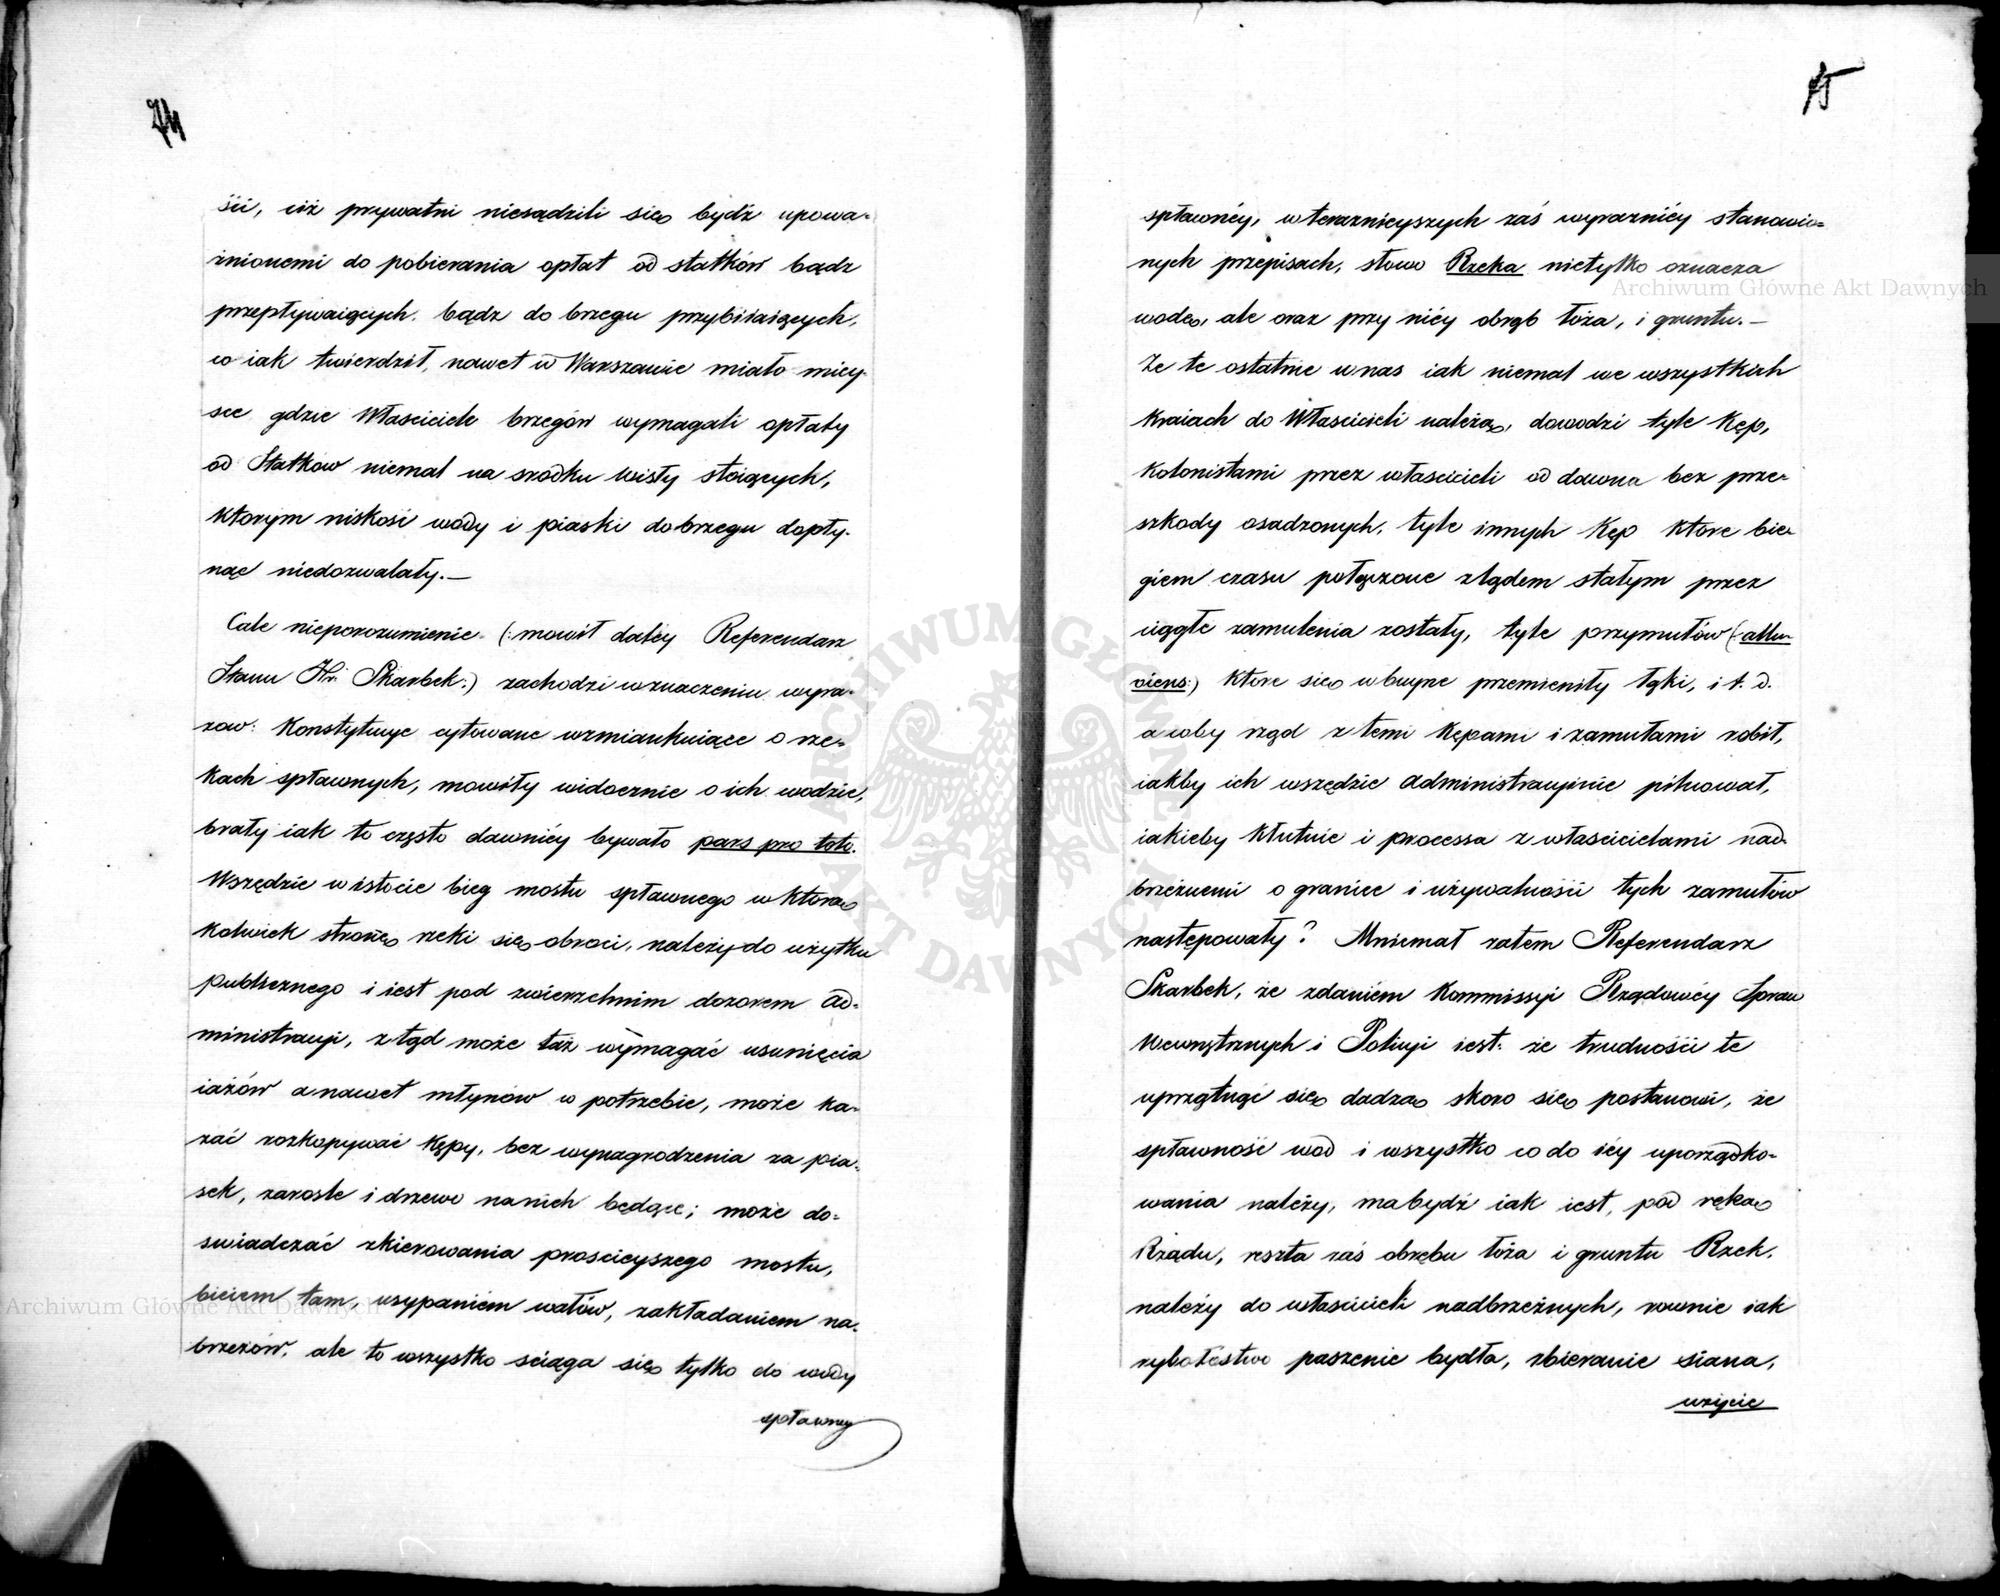 74
ści, iiż prywatni niesądzili się bydź upowa-
żnionemi do pobierania opłat od statków bądz
przepływaiących, bądz do brzegu przybiiaiących,
co iak twierdził, nawet w Warszawie miało miey-
sce gdzie Własciciele brzegów wymagali opłaty
od Statkow niemal na srodku Wisły stoiących,
ktorym niskość wody i piaski do brzegu dopły-
nąć niedozwalały.—
Całe nieporozumienie (: mowił daléy Referendarz
Stanu Hr. Skarbek:) zachodzi w znaczeniu wyra-
zow: Konstytucye cytowane wzmiankuiące o rze-
kach spławnych, mowiły widocznie o ich wodzie,
brały iak to często dawniéy bywało pars pro toto.
Wszędzie w istocie bieg mostu spławnego w ktorą
kolwiek stronę rzeki się obroci, należy do użytku
publicznego i iest pod zwierzchnim dozorem Ad-
ministracyi, z tąd może taż wymagać usunięcia
iazów a nawet młynów w potrzebie, może ka-
zać rozkopywać Kępy, bez wynagrodzenia za pia-
sek, zarosle i drzewo na nich będące; może do-
swiadczać zkierowania proscieyszego mostu,
biciem tam, usypaniem wałów, zakładaniem na-
brzezów, ale to wszystko sciąga się tylko do wody
spławney
75
spławnéy, w teraznieyszych zaś wyrazniéy stanowio-
nych przepisach, słowo Rzeka nietylko oznacza
wodę, ale oraz przy niéy obręb łoża, i gruntu.—
Że te ostatnie u nas iak niemal we wszystkich
Kraiach do Włascicieli należą, dowodzi tyle Kęp,
Kolonistami przez własciceli od dawna bez prze-
szkody osadzonych, tyle innych Kęp które bie-
giem czasu połączone z lądem stałym przez
ciągłe zamulenia zostały, tyle przymułów (: allu-
viens:) które się w buyne przemieniły łąki, i t. d.
a coby rząd z temi Kępami i zamułami robił,
iakby ich wszędzie administracyinie pilnował,
iakieby kłutnie i processa z właścicielami nad-
brzeżnemi o granice i używalność tych zamułów
następowały? Mniemał zatem Referendarz
Skarbek, że zdaniem Kommissyi Rządowéy Spraw
Wewnętrznych i Policyi iest: że trudności te
uprzątnąć się dadzą skoro się postanowi, że
spławność wod i wszystko co do iéy uporządko-
wania należy, ma bydź iak iest, pod ręką
Rządu, reszta zaś obrębu łoża i gruntu Rzek,
należy do włascicieli nadbrzeżnych, rownie iak
rybołostwo paszenie bydła, zbieranie siana,
użycie
ARCHIWUM GŁÓWNE AKT DAWNYCH
Archiwum Główne Akt Dawnych
Archiwum Główne Akt Dawnych